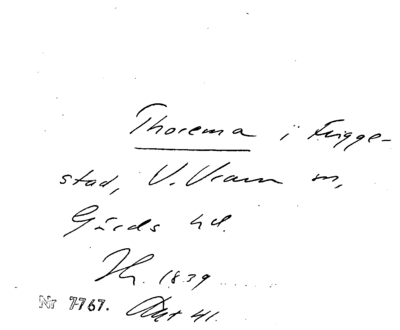 Thorema i Frigge-
stad, V. Vram sn,
Gärds hd.
Hr. 1839
Nr 7767. Avt 41.